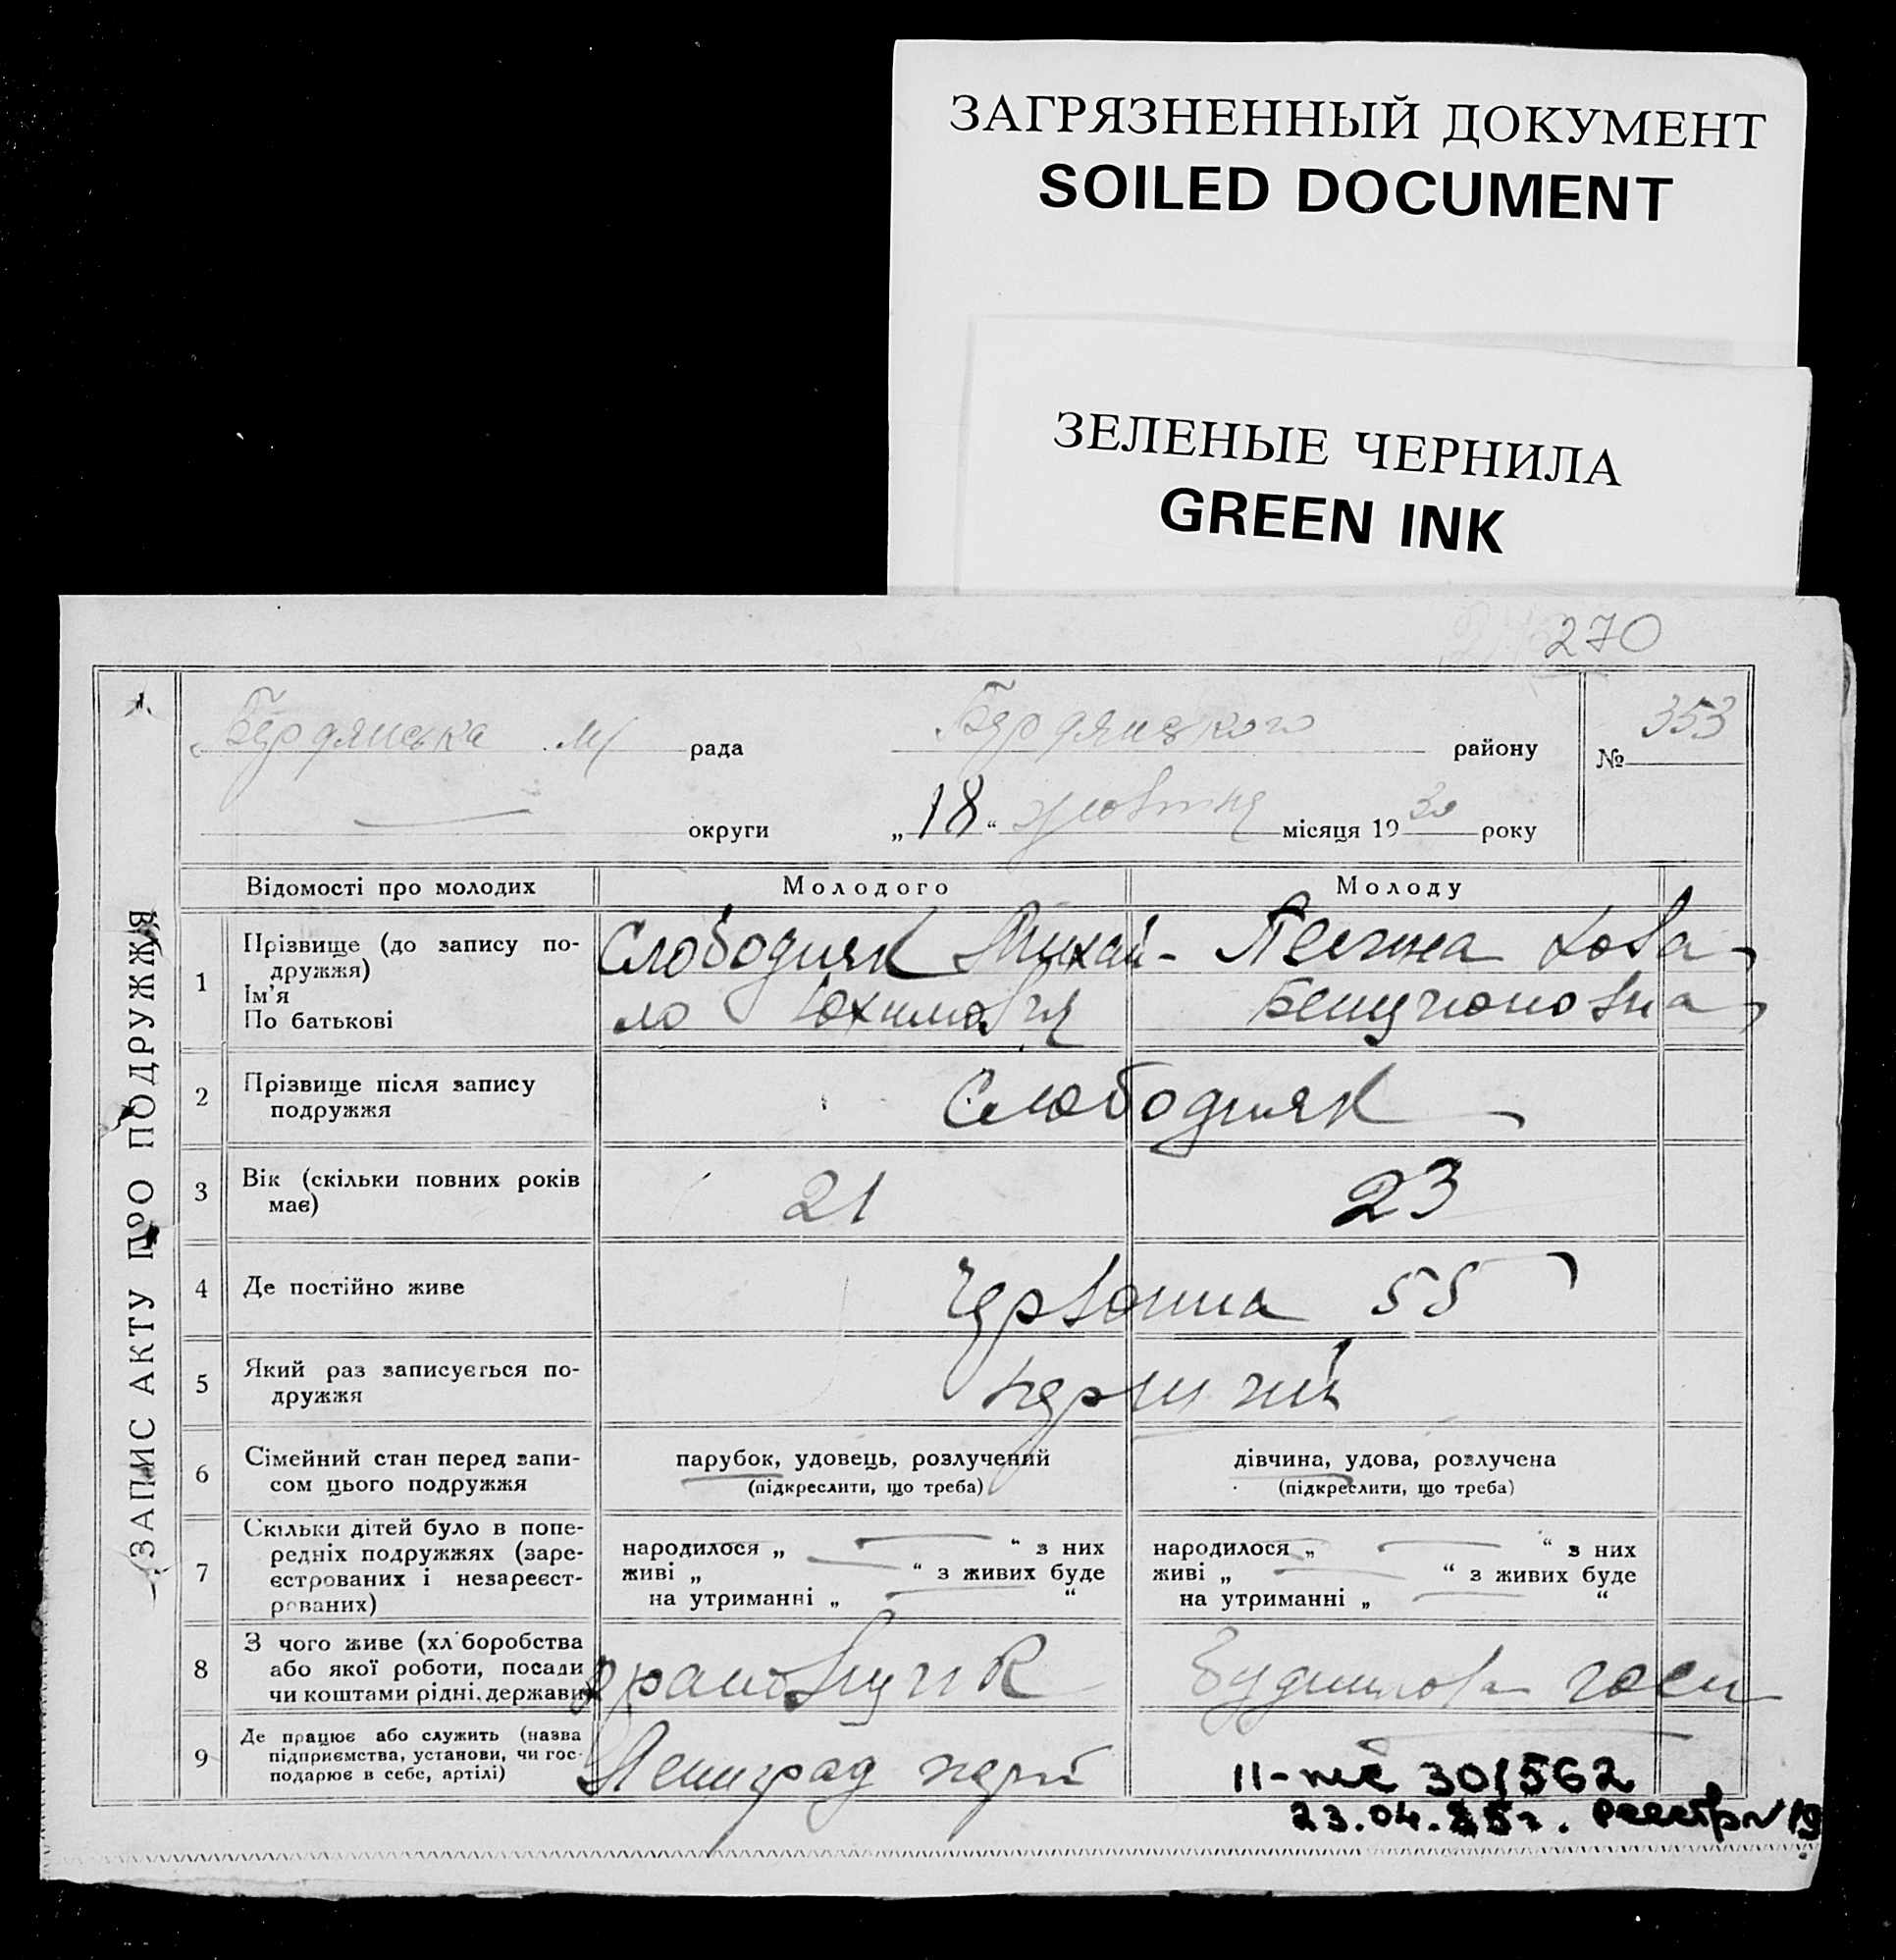 ЗАГРЯЗНЕННЫЙ ДОКУМЕНТ
SOILED DOCUMENT
ЗЕЛЕНЫЕ ЧЕРНИЛА
GREEN INK
270
ЗАПИС АКТУ ПРО ПОДРУЖЖЯ
Бердянська м/ рада Бердянського району № 353
округи „18“ жовтня місяця 1930 року
Відомості про молодих Молодого Молоду
1 Прізвище (до запису по-
дружжя)
Ім'я
По батькові
Слободняк Михай-
ло Юхимович
Хова
Бенционовна
2 Прізвище після запису
подружжя
Слободняк
3 Вік (скільки повних років
має)
21 23
4 Де постійно живе Червонна 55
5 Який раз записується по-
дружжя
перший
6 Сімейний стан перед запи-
сом цього подружжя
парубок, удовець, розлучений
(підкреслити, що треба)
дівчина, удова, розлучена
(підкреслити, що треба)
7 Скільки дітей було в попе-
редніх подружжях (заре-
єстрованих і незареєст-
рованих)
народилося „ “ з них
живі „ “ з живих буде
на утриманні „ “
народилося „ “ з них
живі „ “ з живих буде
на утриманні „ “
8 З чого живе (хліборобства
або якої роботи, посади
чи коштами рідні, держави
9 Де працює або служить (назва
підприємства, установи, чи гос-
подарює в себе, артілі)
Ленинград
301562
23.04.85г. реестр № 19